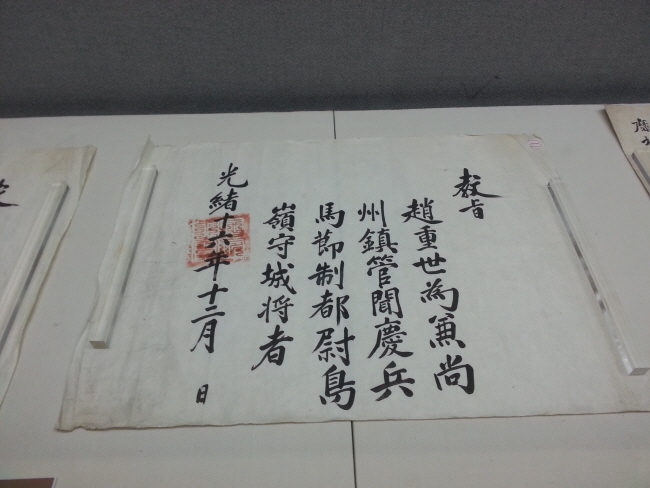 教旨
趙重世爲兼尚
州鎮管聞慶兵
馬節制都尉鳥
嶺守城将者
光緒十六年十二月 日